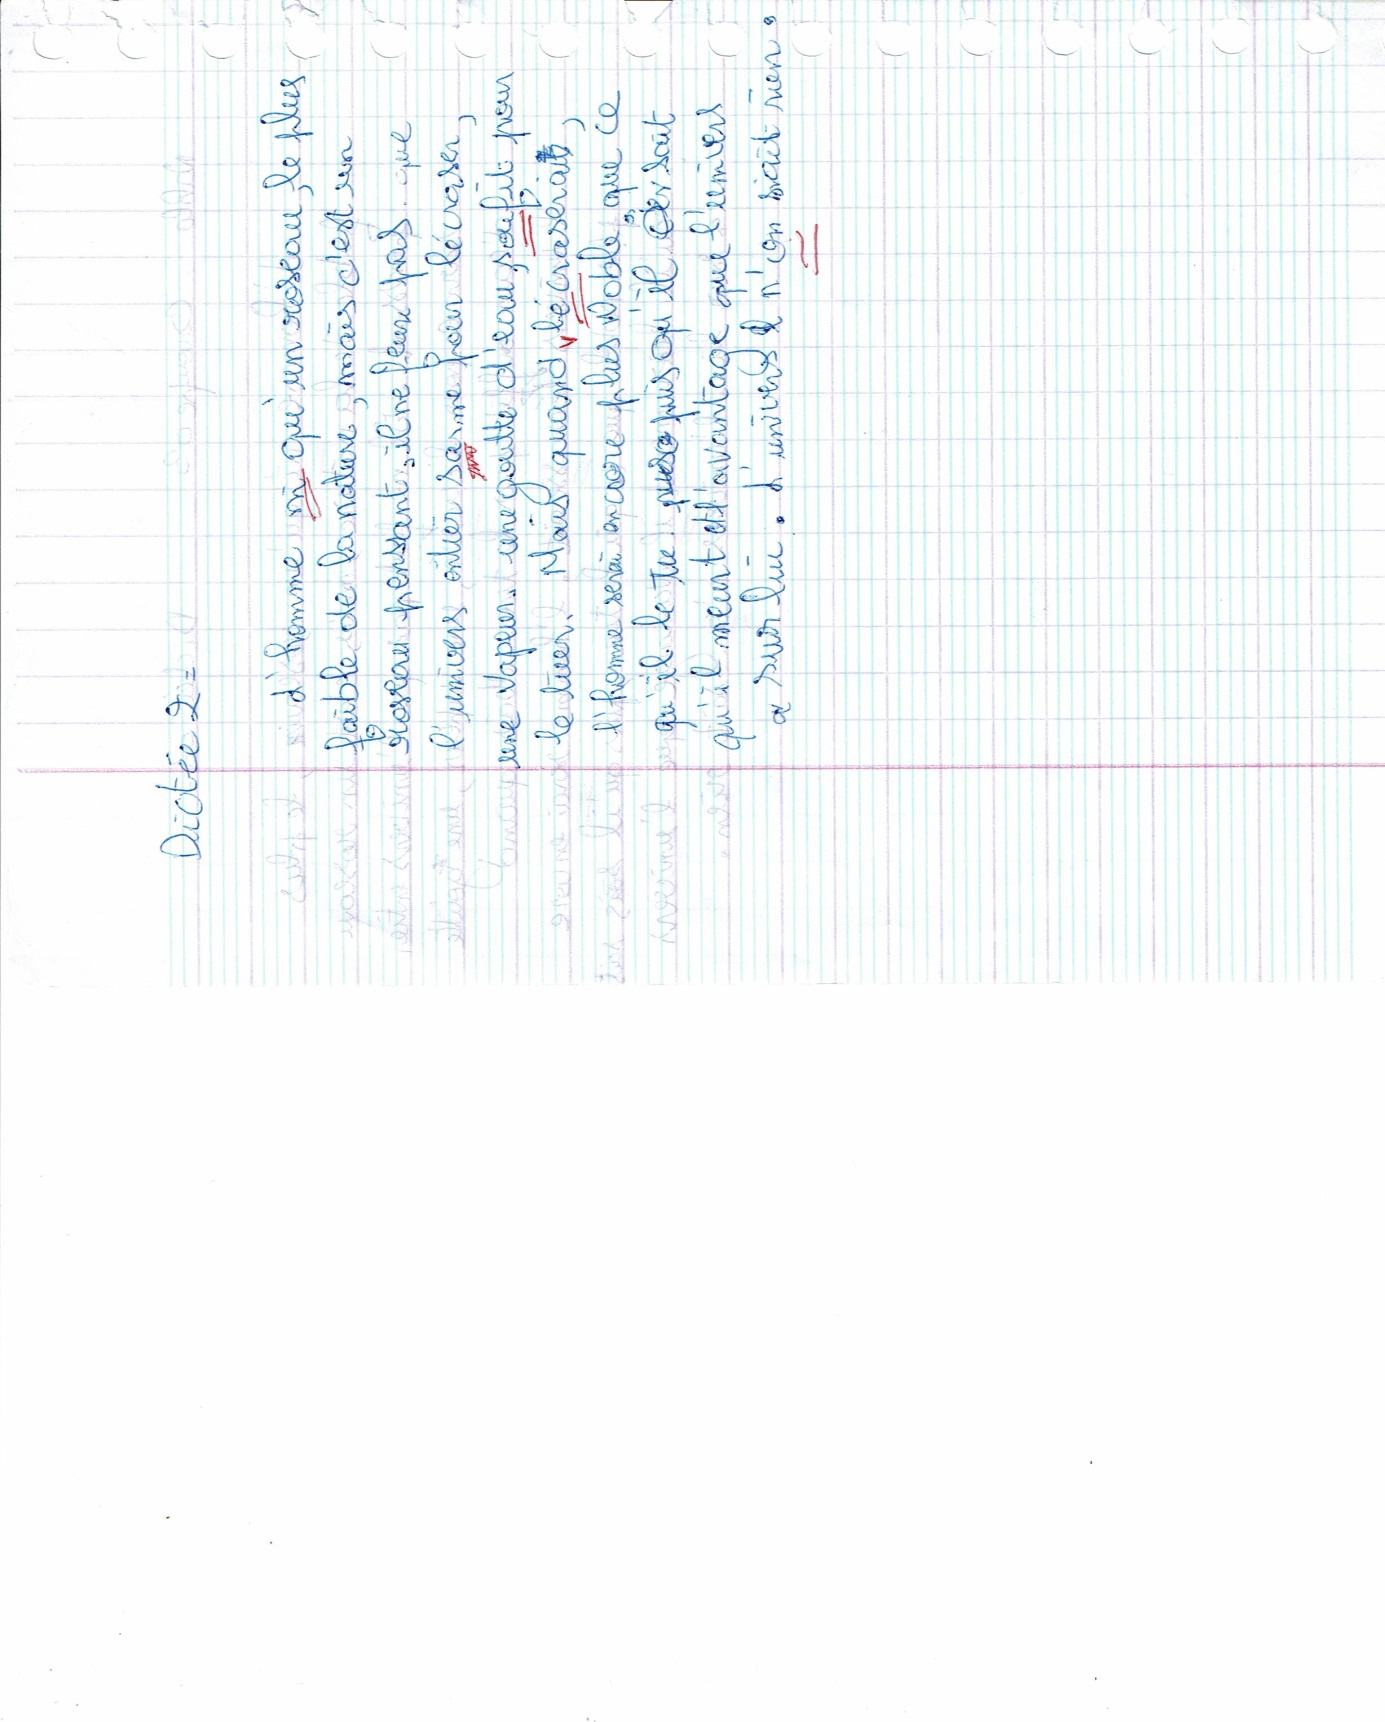 Dictée 2 =
L'homme n'ai qu'un roseau, le plus
faible de la nature, mais c'est un
roseau pensant, il ne feux pas que
l'univers entier sarme pour lécraser,
une vapeur, une goutte d'eau, sufit pour
le tuer. Mais quand lécraserait,
l'homme serai encore plus Noble que ce
qu'il le tue puis qu'il sait
qu'il meurt et l'avantage que l'univers
a sur lui. L'univers n'en sait rien.